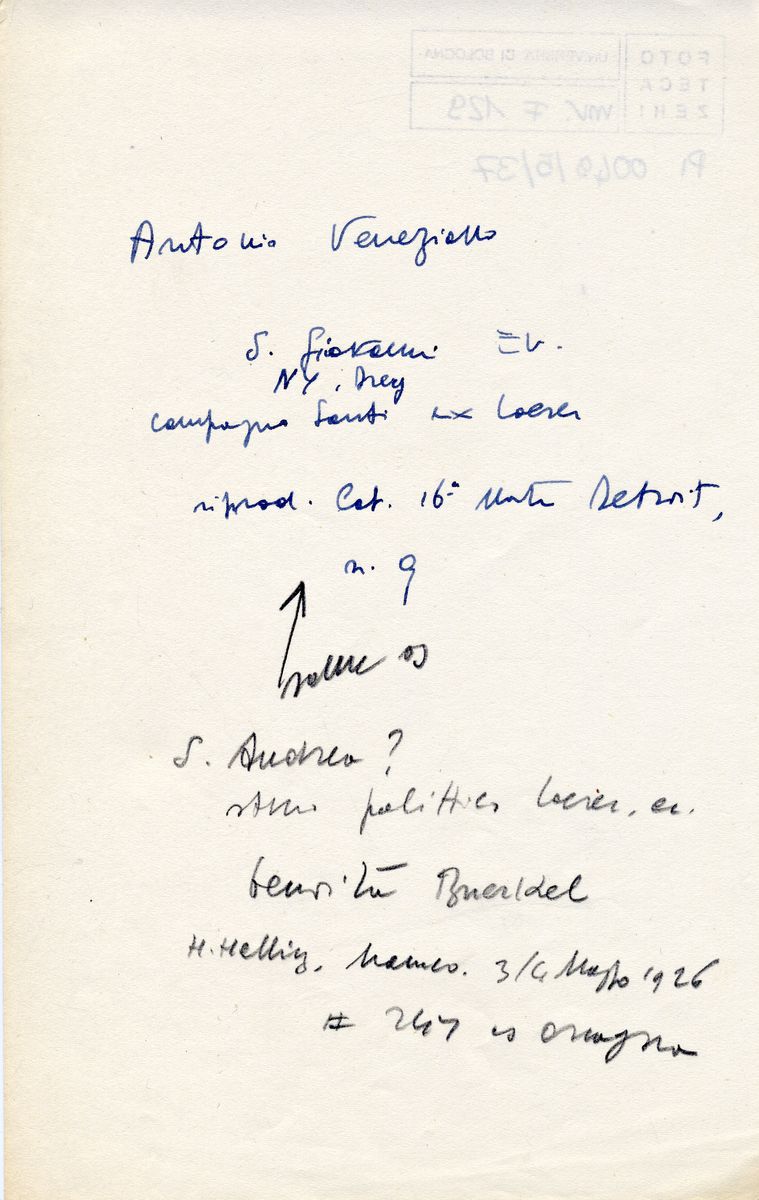 FOTO
TECA
ZERI
UNIVERSITÀ DI BOLOGNA
INV. F 129
PI 0049/5/37
Antonio Veneziano
S. Giovanni Ev.
NY,
compagno Santi ex Loeser
riprod. Cat. 16ª Detroit,
n. 9
S. Andrea?
stesso polittico Loeser, ec.
H. Helbing, Monaco. 3/4 Maggio 1926
# as Orcagna